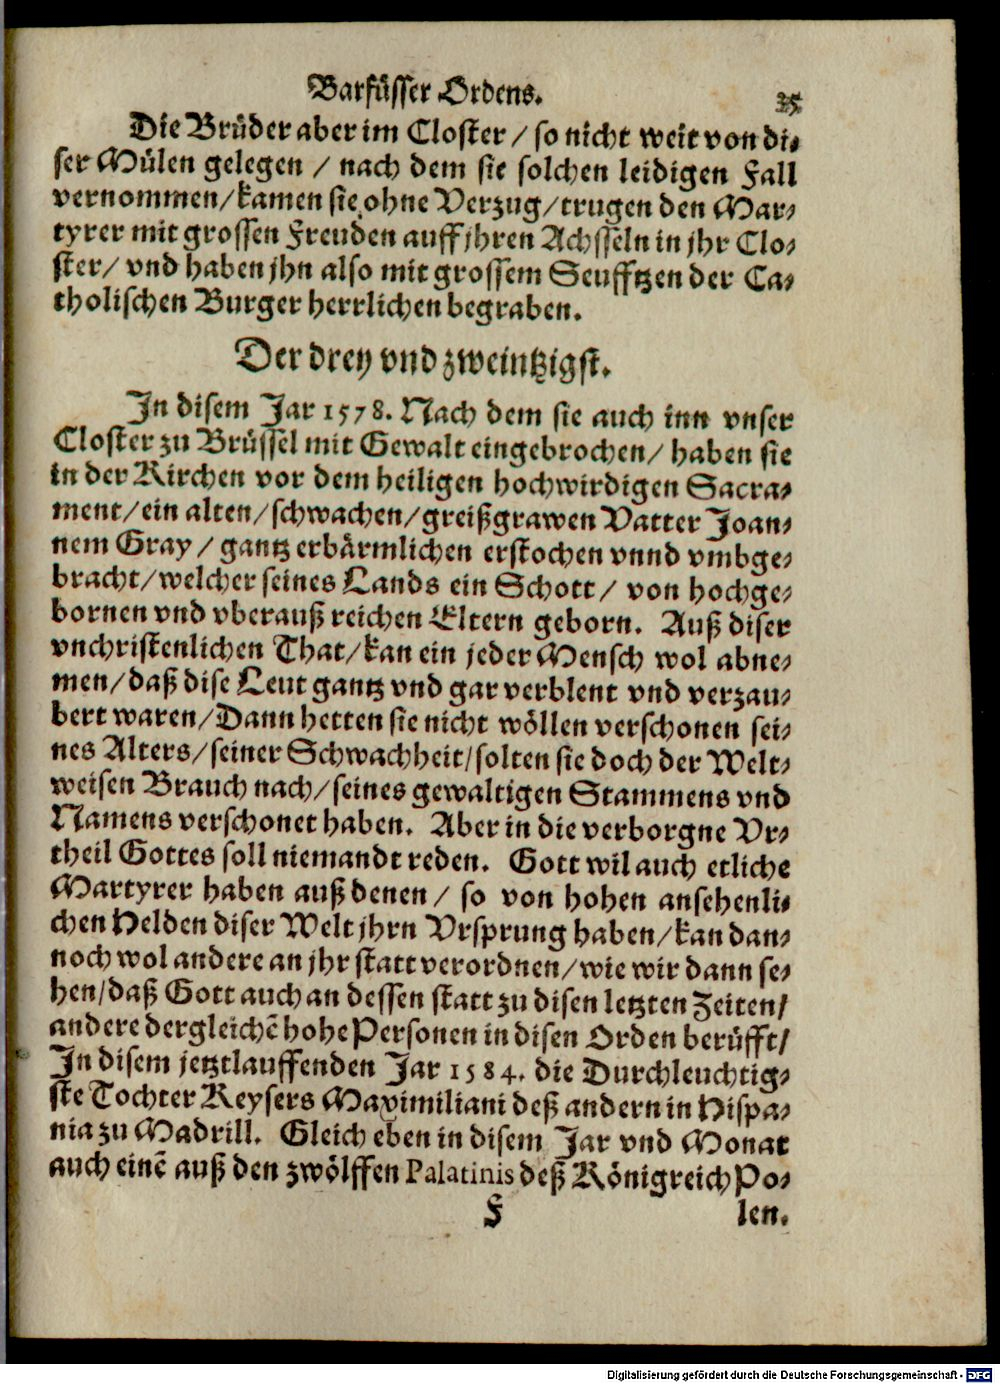 Barfüsser Ordens.
25
Die Brüder aber im Closter / so nicht weit von di-
ser Mülen gelegen / nach dem sie solchen leidigen Fall
vernommen/kamen sie ohne Verzug/trugen den Mar-
tyrer mit grossen Freuden auff jhren Achsseln in jhr Clo-
ster/ vnd haben jhn also mit grossem Seufftzen der Ca-
tholischen Burger herrlichen begraben.
Der drey vnd zweintzigst.
In disem Jar 1578. Nach dem sie auch inn vnser
Closter zu Brüssel mit Gewalt eingebrochen/ haben sie
in der Kirchen vor dem heiligen hochwirdigen Sacra-
ment/ein alten/schwachen/greißgrawen Vatter Joan-
nem Gray / gantz erbärmlichen erstochen vnnd vmbge-
bracht/welcher seines Lands ein Schott/ von hochge-
bornen vnd vberauß reichen Eltern geborn. Auß diser
vnchristenlichen That/kan ein jeder Mensch wol abne-
men/daß dise Leut gantz vnd gar verblent vnd verzau-
bert waren/Dann hetten sie nicht wöllen verschonen sei-
nes Alters/seiner Schwachheit/solten sie doch der Welt-
weisen Brauch nach/seines gewaltigen Stammens vnd
Namens verschonet haben. Aber in die verborgne Vr-
theil Gottes soll niemandt reden. Gott wil auch etliche
Martyrer haben auß denen/ so von hohen ansehenli-
chen Helden diser Welt jhrn Vrsprung haben/kan dan-
noch wol andere an jhr statt verordnen/wie wir dann se-
hen/daß Gott auch an dessen statt zu disen letzten Zeiten/
andere dergleichē hohe Personen in disen Orden berüfft/
In disem jetztlauffenden Jar 1584. die Durchleuchtig-
ste Tochter Keysers Maximiliani deß andern in Hispa-
nia zu Madrill. Gleich eben in disem Jar vnd Monat
auch einē auß den zwölffen Palatinis deß Königreich Po-
F
len.
Digitalisierung gefördert durch die Deutsche Forschungsgemeinschaft - DFG